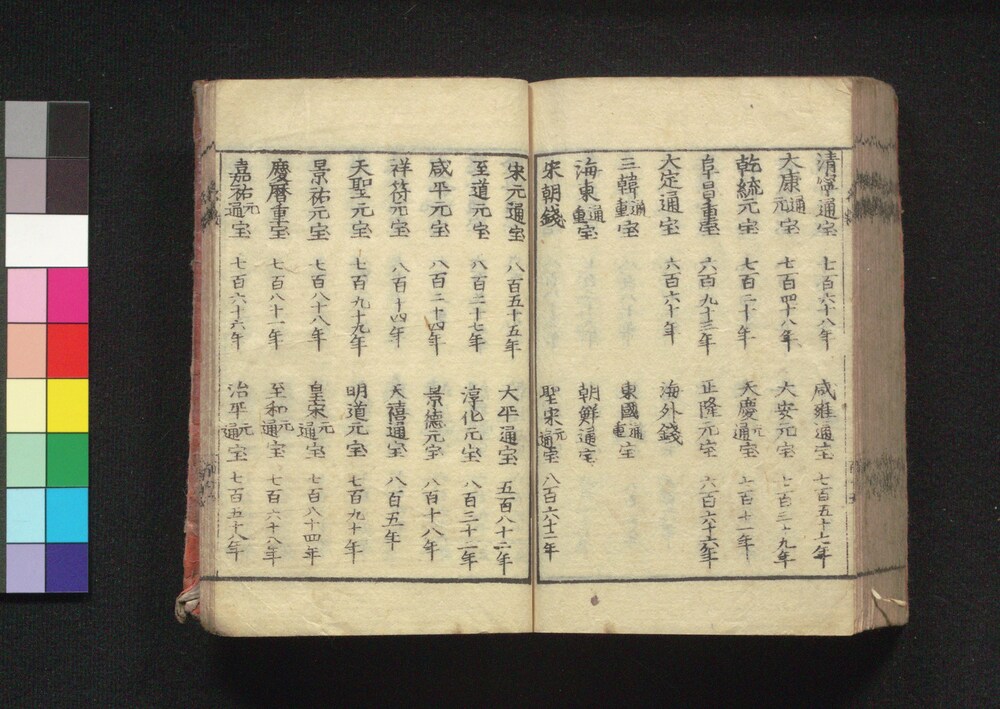 清寧通宝 七百六十八年 咸雍通宝 七百五十七年
大康元通宝 七百四十八年 大安元宝 七百三十九年
乾統元宝 七百二十年 天慶元通宝 七百十一年
阜昌重宝 六百九十三年 正隆元宝 六百六十六年
大定通宝 六百六十年 海外錢
三韓通重宝 東國通重宝
海東通重宝 朝鮮通宝
宋朝錢 聖宋元通宝 八百六十二年
宋元通宝 八百五十五年 大平通宝 五百八十二年
至道元宝 八百二十七年 淳化元宝 八百三十二年
咸平元宝 八百二十四年 景德元宝 八百十八年
祥符元宝 八百十四年 天禧通宝 八百五年
天聖元宝 七百九十九年 明道元宝 七百九十年
景祐元宝 七百八十八年 皇宋元通宝 七百八十四年
慶曆重宝 七百八十一年 至和元通宝 七百六十八年
嘉祐元通宝 七百六十六年 治平元通宝 七百五十八年